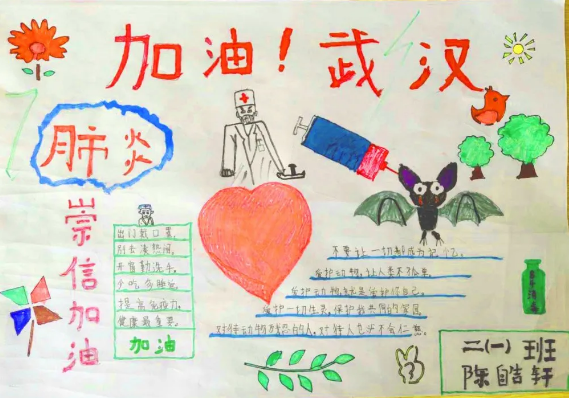 加油！武汉
肺炎
崇信加油
出门戴口罩,
别去凑热闹,
开窗勤洗手,
少吃多睡觉
提高免疫力,
健康最重要。
加油
不要让一切都成为记忆。
爱护动物,让人类不孤单。
爱护动物就是爱护你自己。
爱护一切生灵,保护我共同的家园
对待动物残忍的人,对待人也
二(一)班
陈皓轩